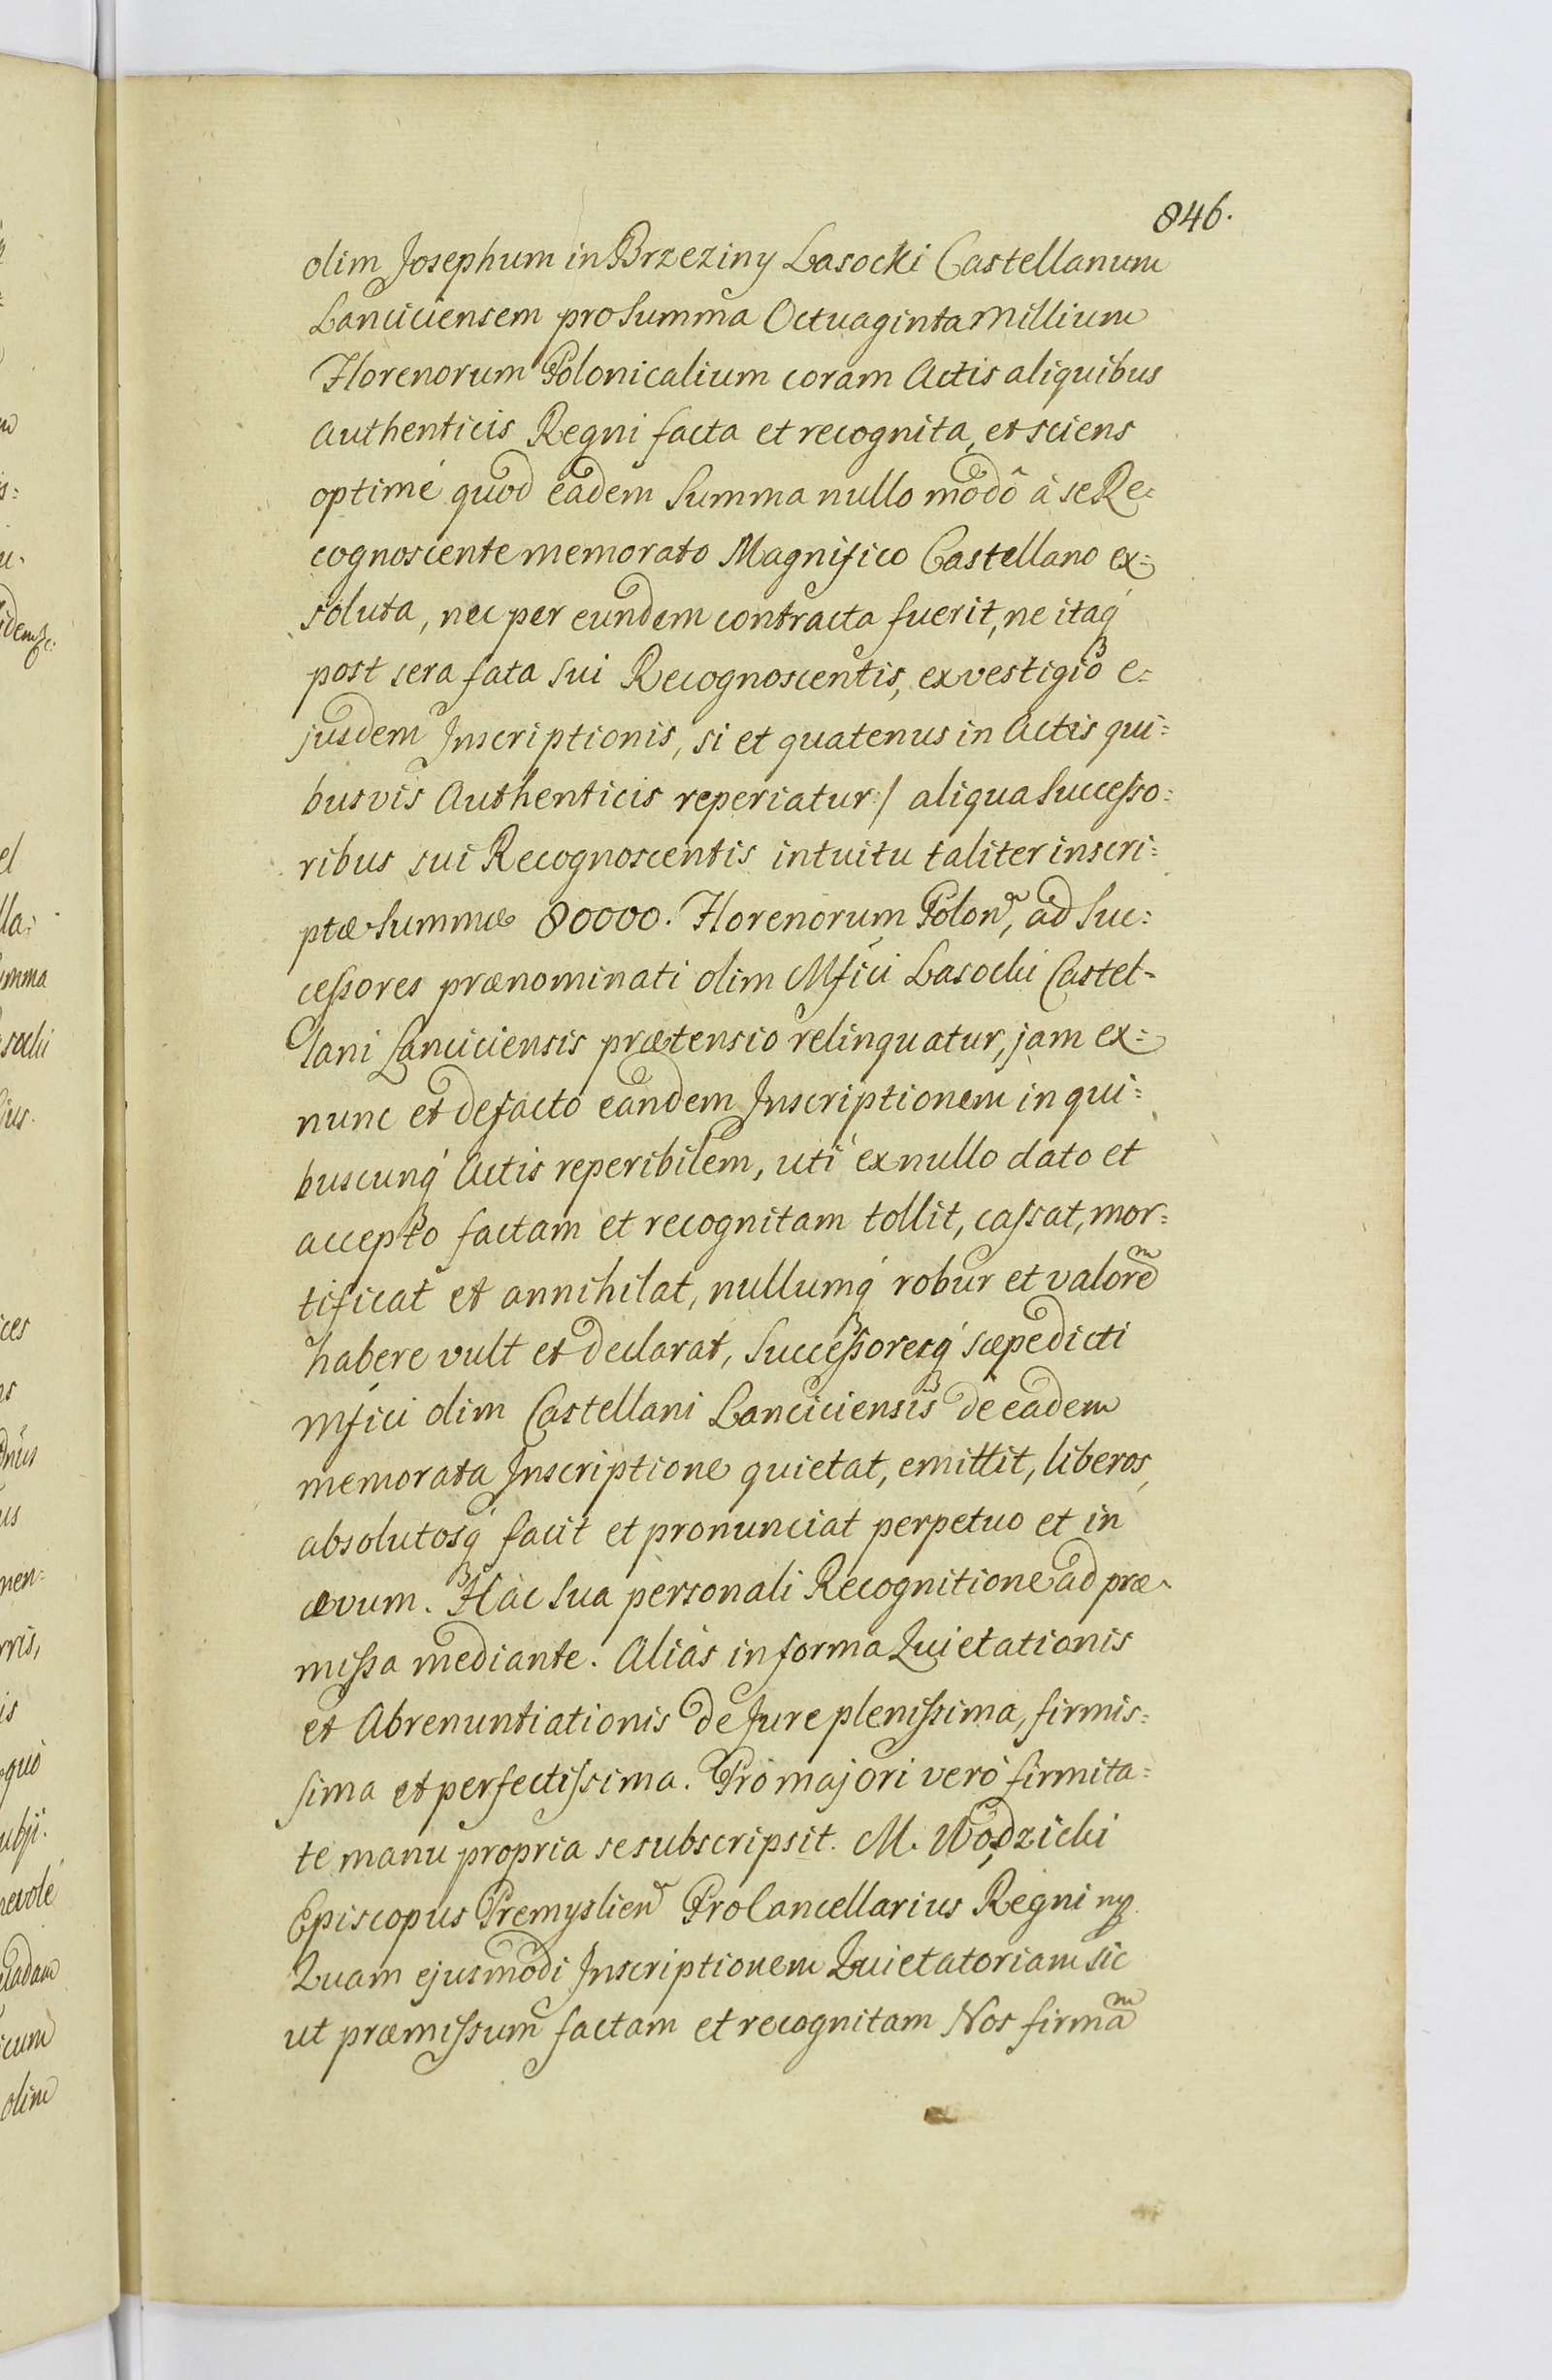 846.
olim Josephum in Brzeziny Lasocki Castellanum
Lanciciensem pro Summa Octuaginta Millium
Florenorum Polonicalium coram Actis aliquibus
Authenticis Regni facta et recognita, et sciens
optimé quod eadem Summa nullo modô à se Re=
cognoscente memorato Magnifico Castellano ex=
soluta, nec per eundem contracta fuerit, ne itaq́
post sera fata sui Recognoscentis, ex vestigio e=
jusdem Inscriptionis, si et quatenus in Actis qui=
busvis Authenticis reperiatur :/ aliqua Successo=
ribus sui Recognoscentis intuitu taliter inscri=
ptæ Summæ 80000. Florenorum Polon, ad Suc=
cessores prænominati olim Mfici Lasocki Castel=
lani Lanciciensis prætensio relinquatur, jam ex=
nunc et de facto eandem Inscriptionem in qui=
buscunq́ Actis reperibilem, uti ex nullo dato et
accepto factam et recognitam tollit, cassat, mor=
tificat et annihilat, nullumq́ robur et valorem
habere vult et declarat, Successoresq́ sæpedicti
Mfici olim Castellani Lanciciensis de eadem
memorata Inscriptione quietat, emittit, liberos,
absolutosq́ facit et pronunciat perpetuo et in
ævum. Hac Sua personali Recognitione ad præ=
missa mediante. Aliàs in forma Quietationis
et Abrenuntiationis de Jure plenissima, firmis=
sima et perfectissima. Pro majori verò firmita=
te manu propria se subscripsit. M. Wodzicki
Episcopus Premyslien ProCancellarius Regni mp
Quam ejusmodi Inscriptionem Quietatoriam sic
ut præmissum factam et recognitam Nos firmam